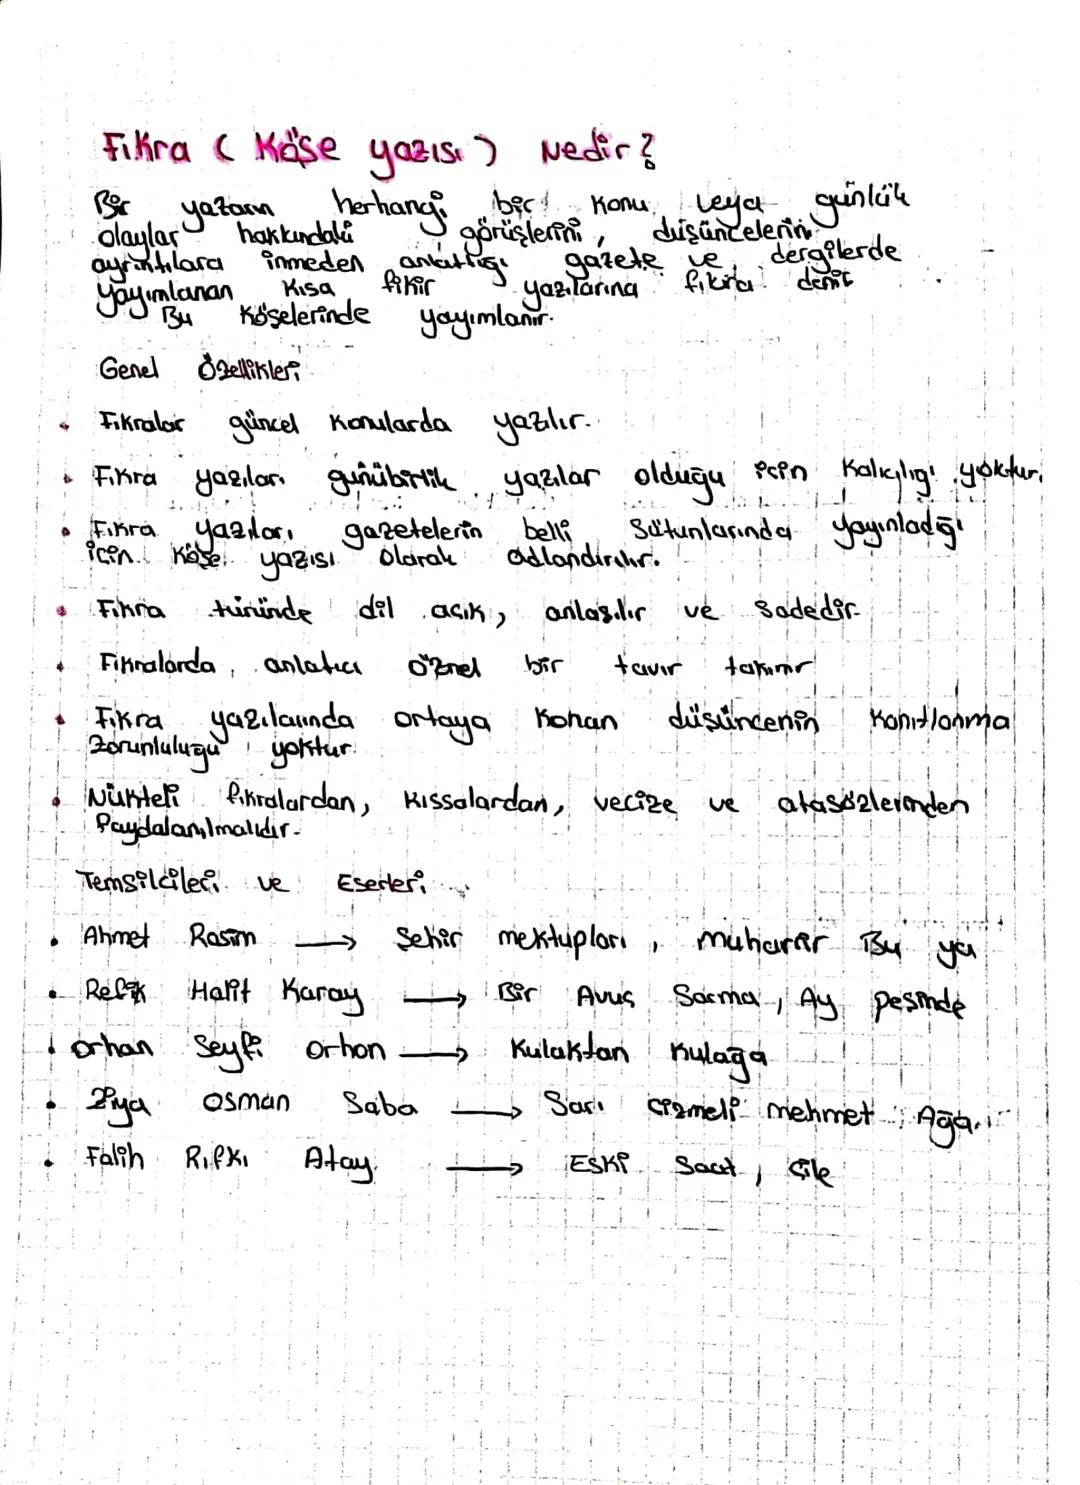 Fıkra ( Köşe yazısı ) Nedir?
Bir yazarın herhangi bir konu veya günlük
olaylar hakkındaki görüşlerini, düşüncelerini
ayrıntılara inmeden anlattığı gazete ve dergilerde
yayımlanan kısa fikir yazılarına fıkra denir
Bu köşelerinde yayımlanır.
Genel Özellikleri
• Fıkralar güncel konularda yazılır.
• Fıkra yazıları günübirlik yazılar olduğu için kalıcılığı yoktur.
• Fıkra yazıları gazetelerin belli sütunlarında yayınladığı
için köşe yazısı olarak adlandırılır.
• Fıkra türünde dil açık, anlaşılır ve sadedir.
• Fıkralarda, anlatıcı öznel bir tavır takınır
• Fıkra yazılarında ortaya konan düşüncenin kanıtlanma
zorunluluğu yoktur.
• Nükteli fıkralardan, kıssalardan, vecize ve atasözlerinden
Paydalanılmalıdır.
Temsilcileri ve Eserleri
• Ahmet Rasim → Şehir mektupları, muharrir Bu ya
• Refik Halit Karay → Bir Avuç Saçma, Ay peşinde
• Orhan Seyfi Orhon → Kulaktan Kulağa
• Ziya Osman Saba → Sarı çizmeli mehmet Ağa
• Falih Rıfkı Atay → Eski Saat, Çile